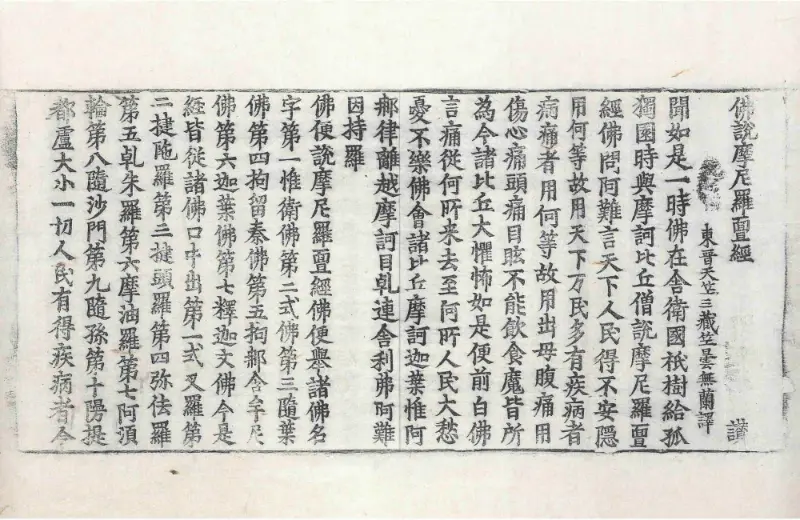 佛說摩尼羅亶經 讃
東晉天竺三藏竺曇無蘭譯
聞如是一時佛在舍衛國祇樹給孤
獨園時與摩訶比丘僧說摩尼羅亶
經佛問阿難言天下人民得不安隱
用何等故用天下万民多有疾病者
病痛者用何等故用出母腹痛用
傷心痛頭痛目眩不能飲食魔皆所
為今諸比丘大懼怖如是便前白佛
言痛從何所来去至何所人民大愁
憂不樂佛會諸比丘摩訶迦葉惟阿
那律離越摩訶目乹連舍利弗阿難
因持羅
佛便說摩尼羅亶經佛便舉諸佛名
字第一惟衛佛第二式佛第三隨葉
佛第四拘留秦佛第五拘那含牟尼
佛第六迦葉佛第七釋迦文佛今是
經皆從諸佛口中出第一式叉羅第
二揵陁羅第三揵頭羅第四弥佉羅
第五乹朱羅第六摩油羅第七阿須
輪第八隨沙門第九隨孫第十提
都盧大小一切人民有得疾病者今